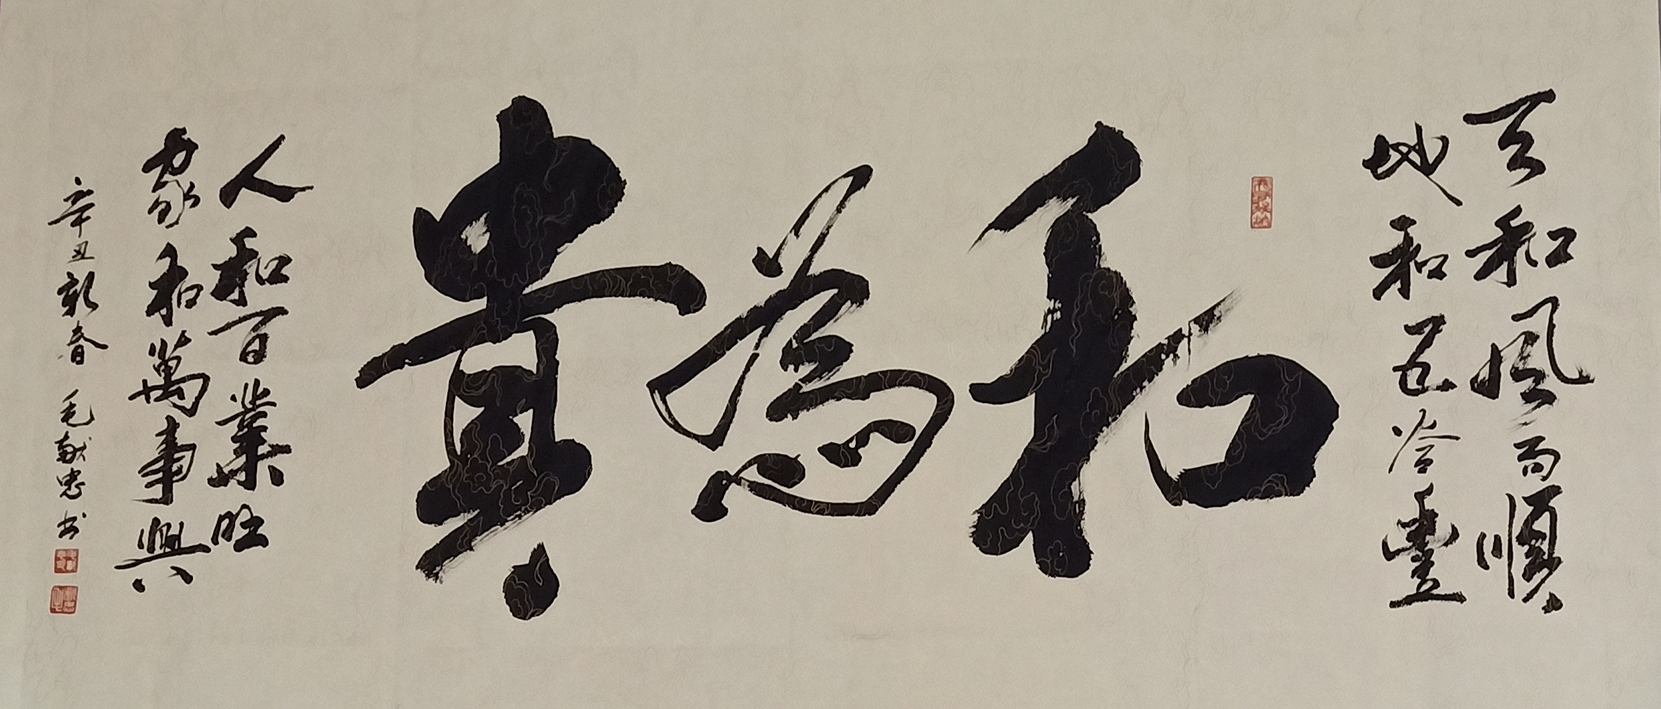 天和風雨順
地和五谷豐
和為貴
人和百業旺
家和萬事興
辛丑新春 毛献忠书